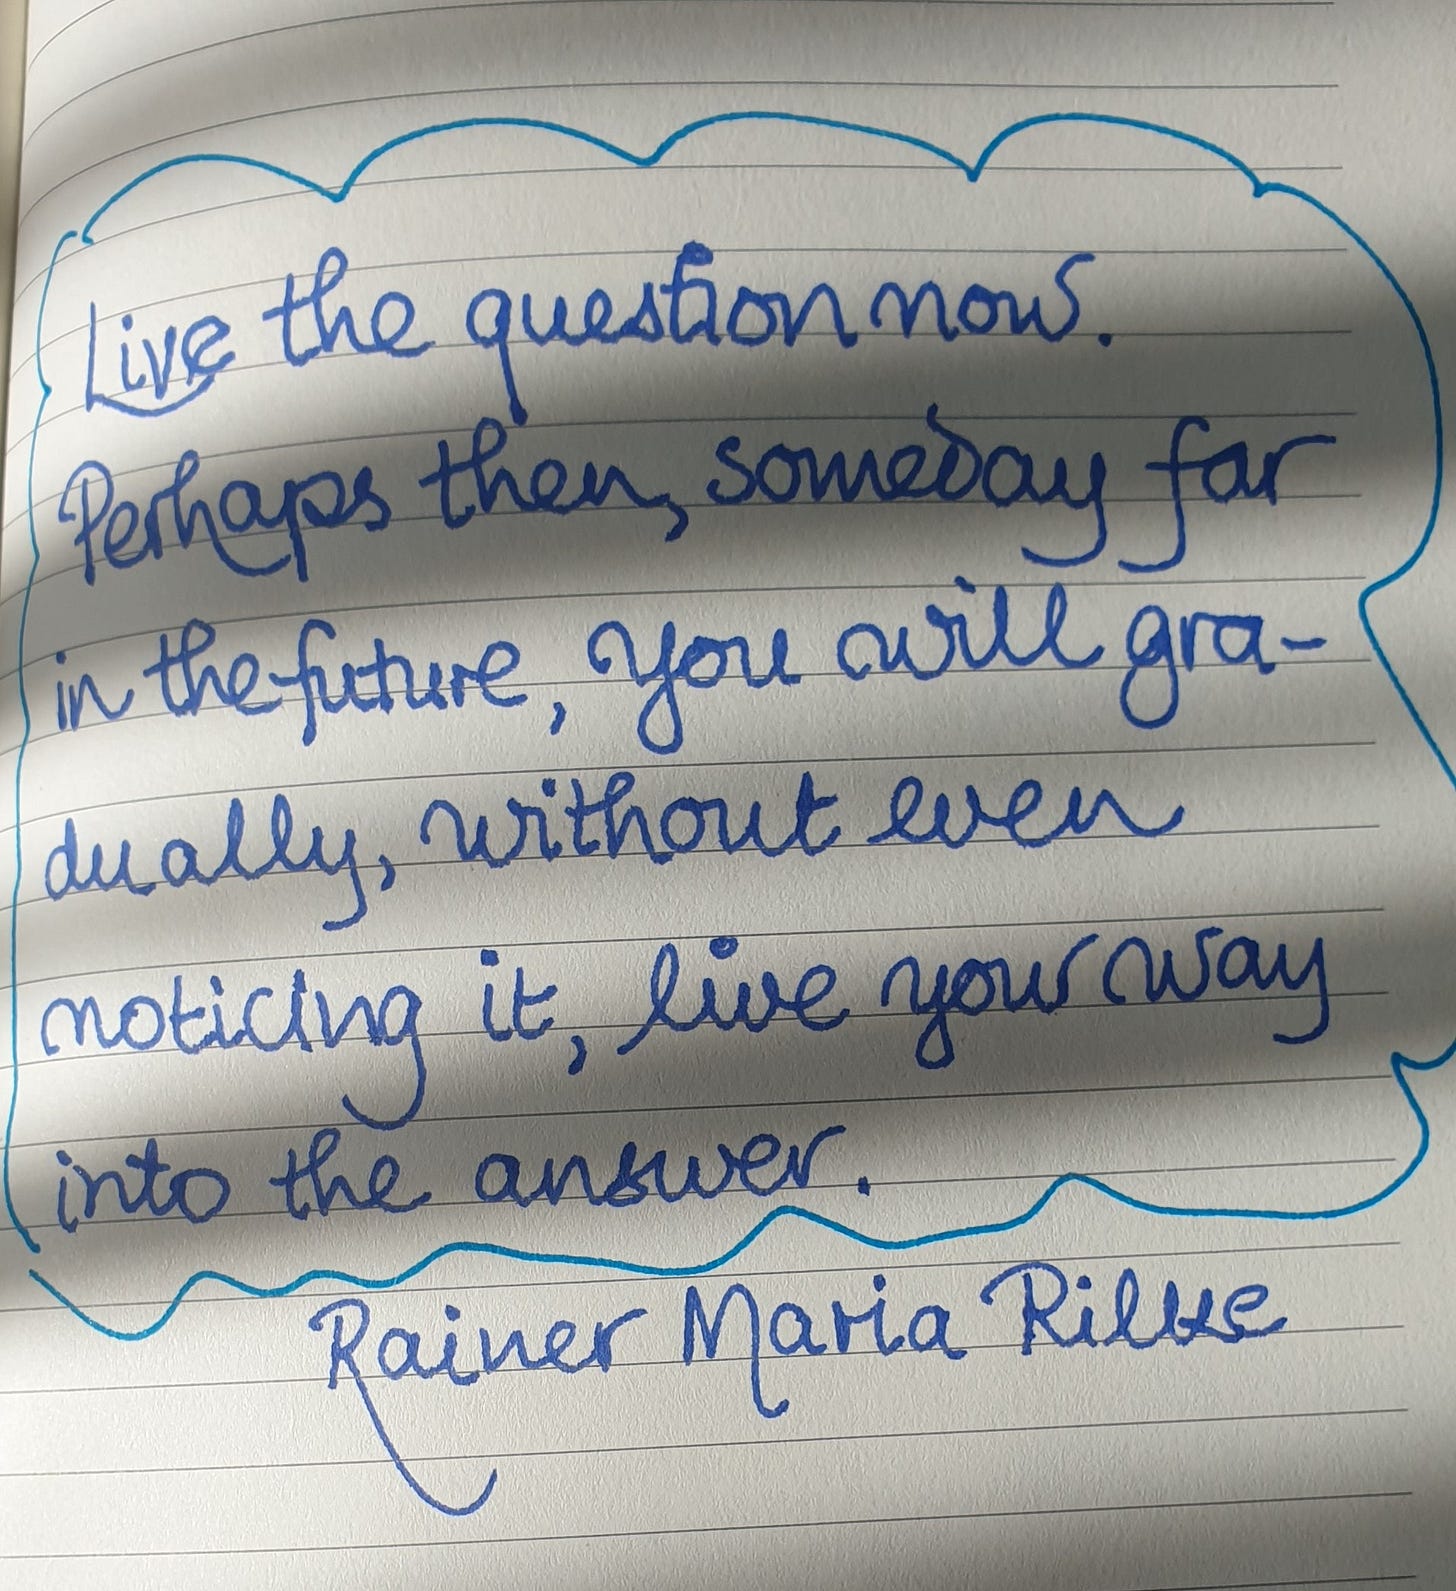 Live the question now.
Perhaps then, someday far
in the future, you will gra-
dually, without even
noticing it, live your way
into the answer.
Rainer Maria Rilke